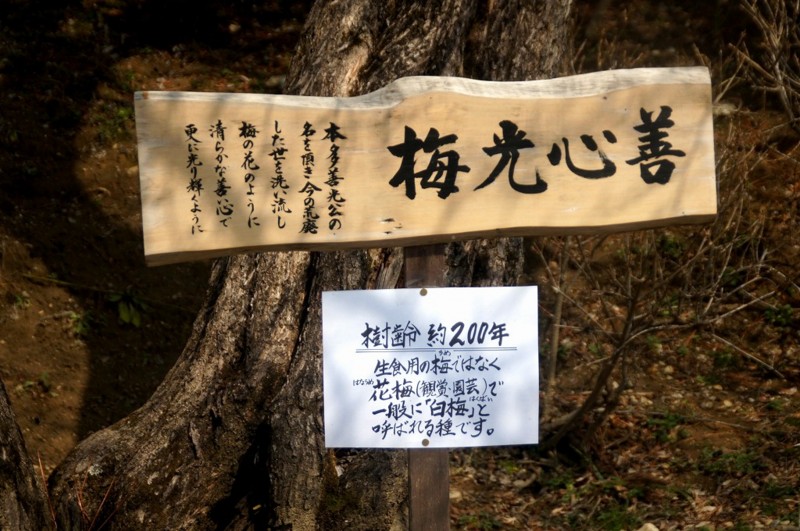 善心光梅
本多善光公の
名を頂き今の荒廃
した世を洗い流し
梅の花のように
清らかな善心で
更に光り輝くように
樹齢 約200年
生食用の梅ではなく
花梅(観賞・園芸)で
一般に「白梅」と
呼ばれる種です。
うめ
はなうめ
はくばい